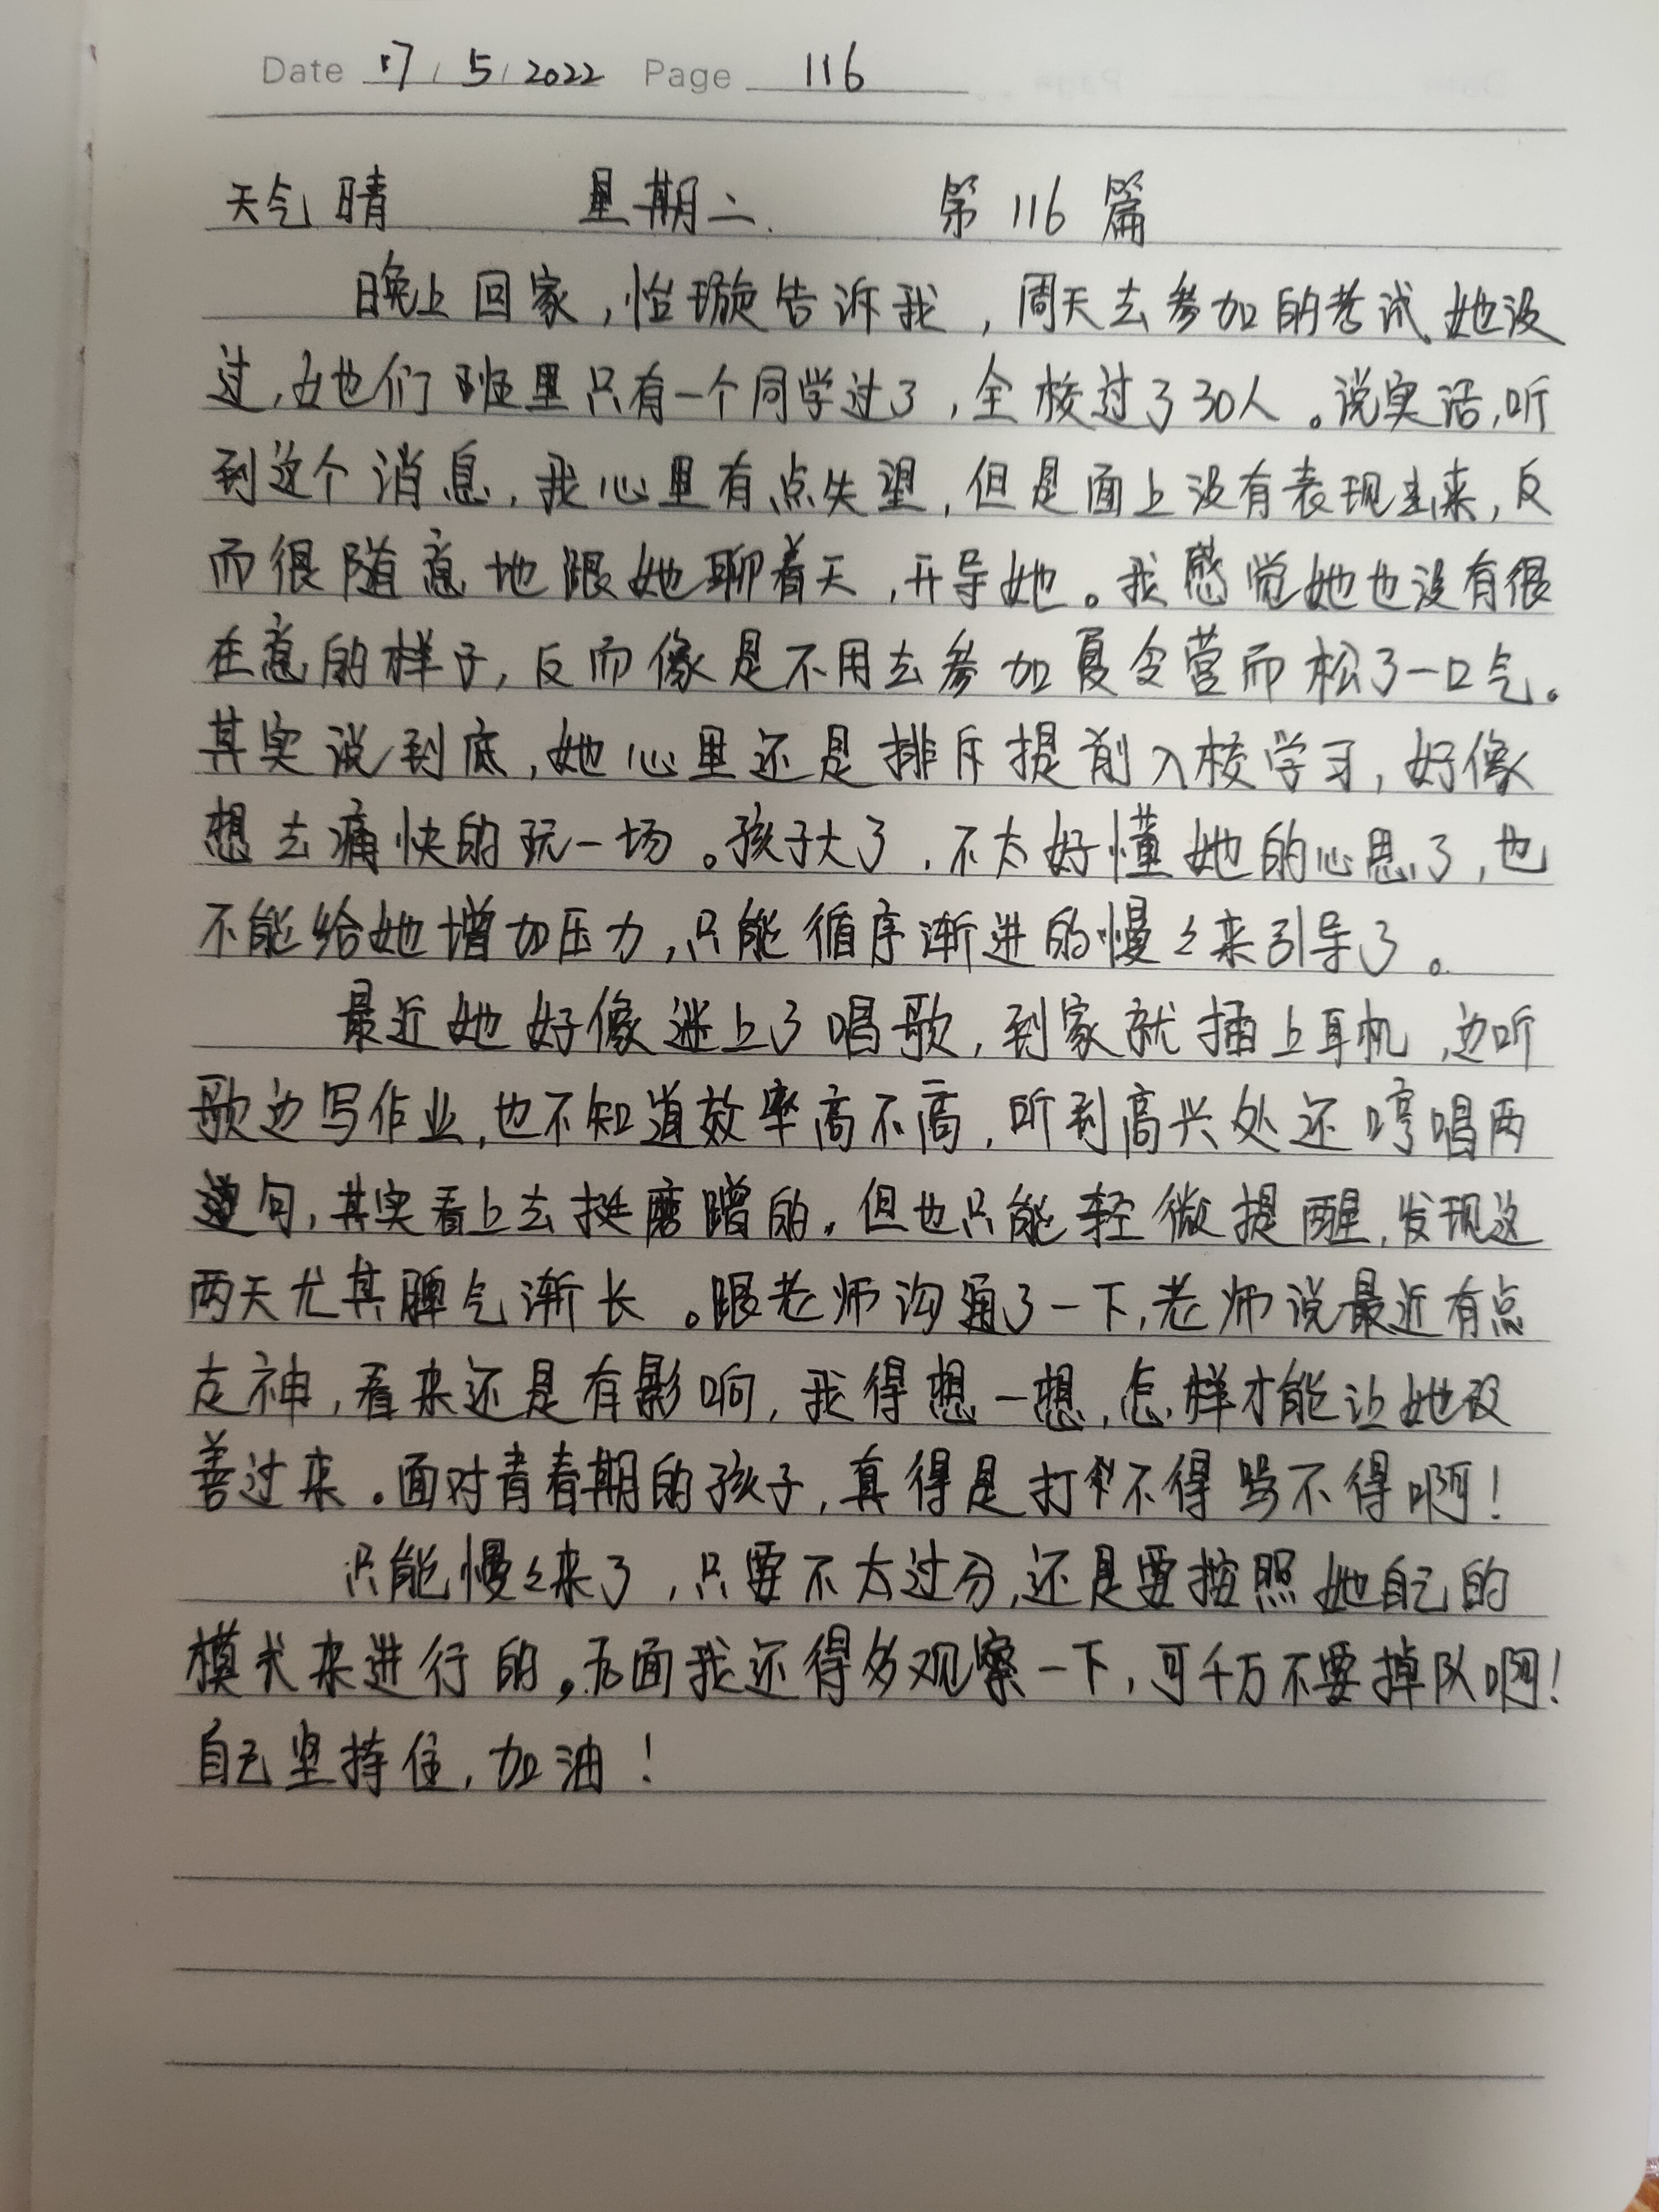 Date 17 / 5 / 2022 Page 116
天气晴 星期二. 第116篇
晚上回家，怡璇告诉我，周天去参加的考试她没
过，她们班里只有一个同学过了，全校过了30人。说实话，听
到这个消息，我心里有点失望，但是面上没有表现出来，反
而很随意地跟她聊着天，开导她。我感觉她也没有很
在意的样子，反而像是不用去参加夏令营而松了一口气。
其实说到底，她心里还是排斥提前入校学习，好像
想去痛快的玩一场。孩子大了，不太好懂她的心思了，也
不能给她增加压力，只能循序渐进的慢々来引导了。
最近她好像迷上了唱歌，到家就插上耳机，边听
歌边写作业，也不知道效率高不高，听到高兴处还哼唱两
句，其实看上去挺磨蹭的。但也只能轻微提醒，发现这
两天尤其脾气渐长。跟老师沟通了一下，老师说最近有点
走神，看来还是有影响，我得想一想，怎样才能让她改
善过来。面对青春期的孩子，真得是打不得骂不得啊！
只能慢々来了，只要不太过分，还是要按照她自己的
模式来进行的。后面我还得多观察一下，可千万不要掉队啊！
自己坚持住，加油！